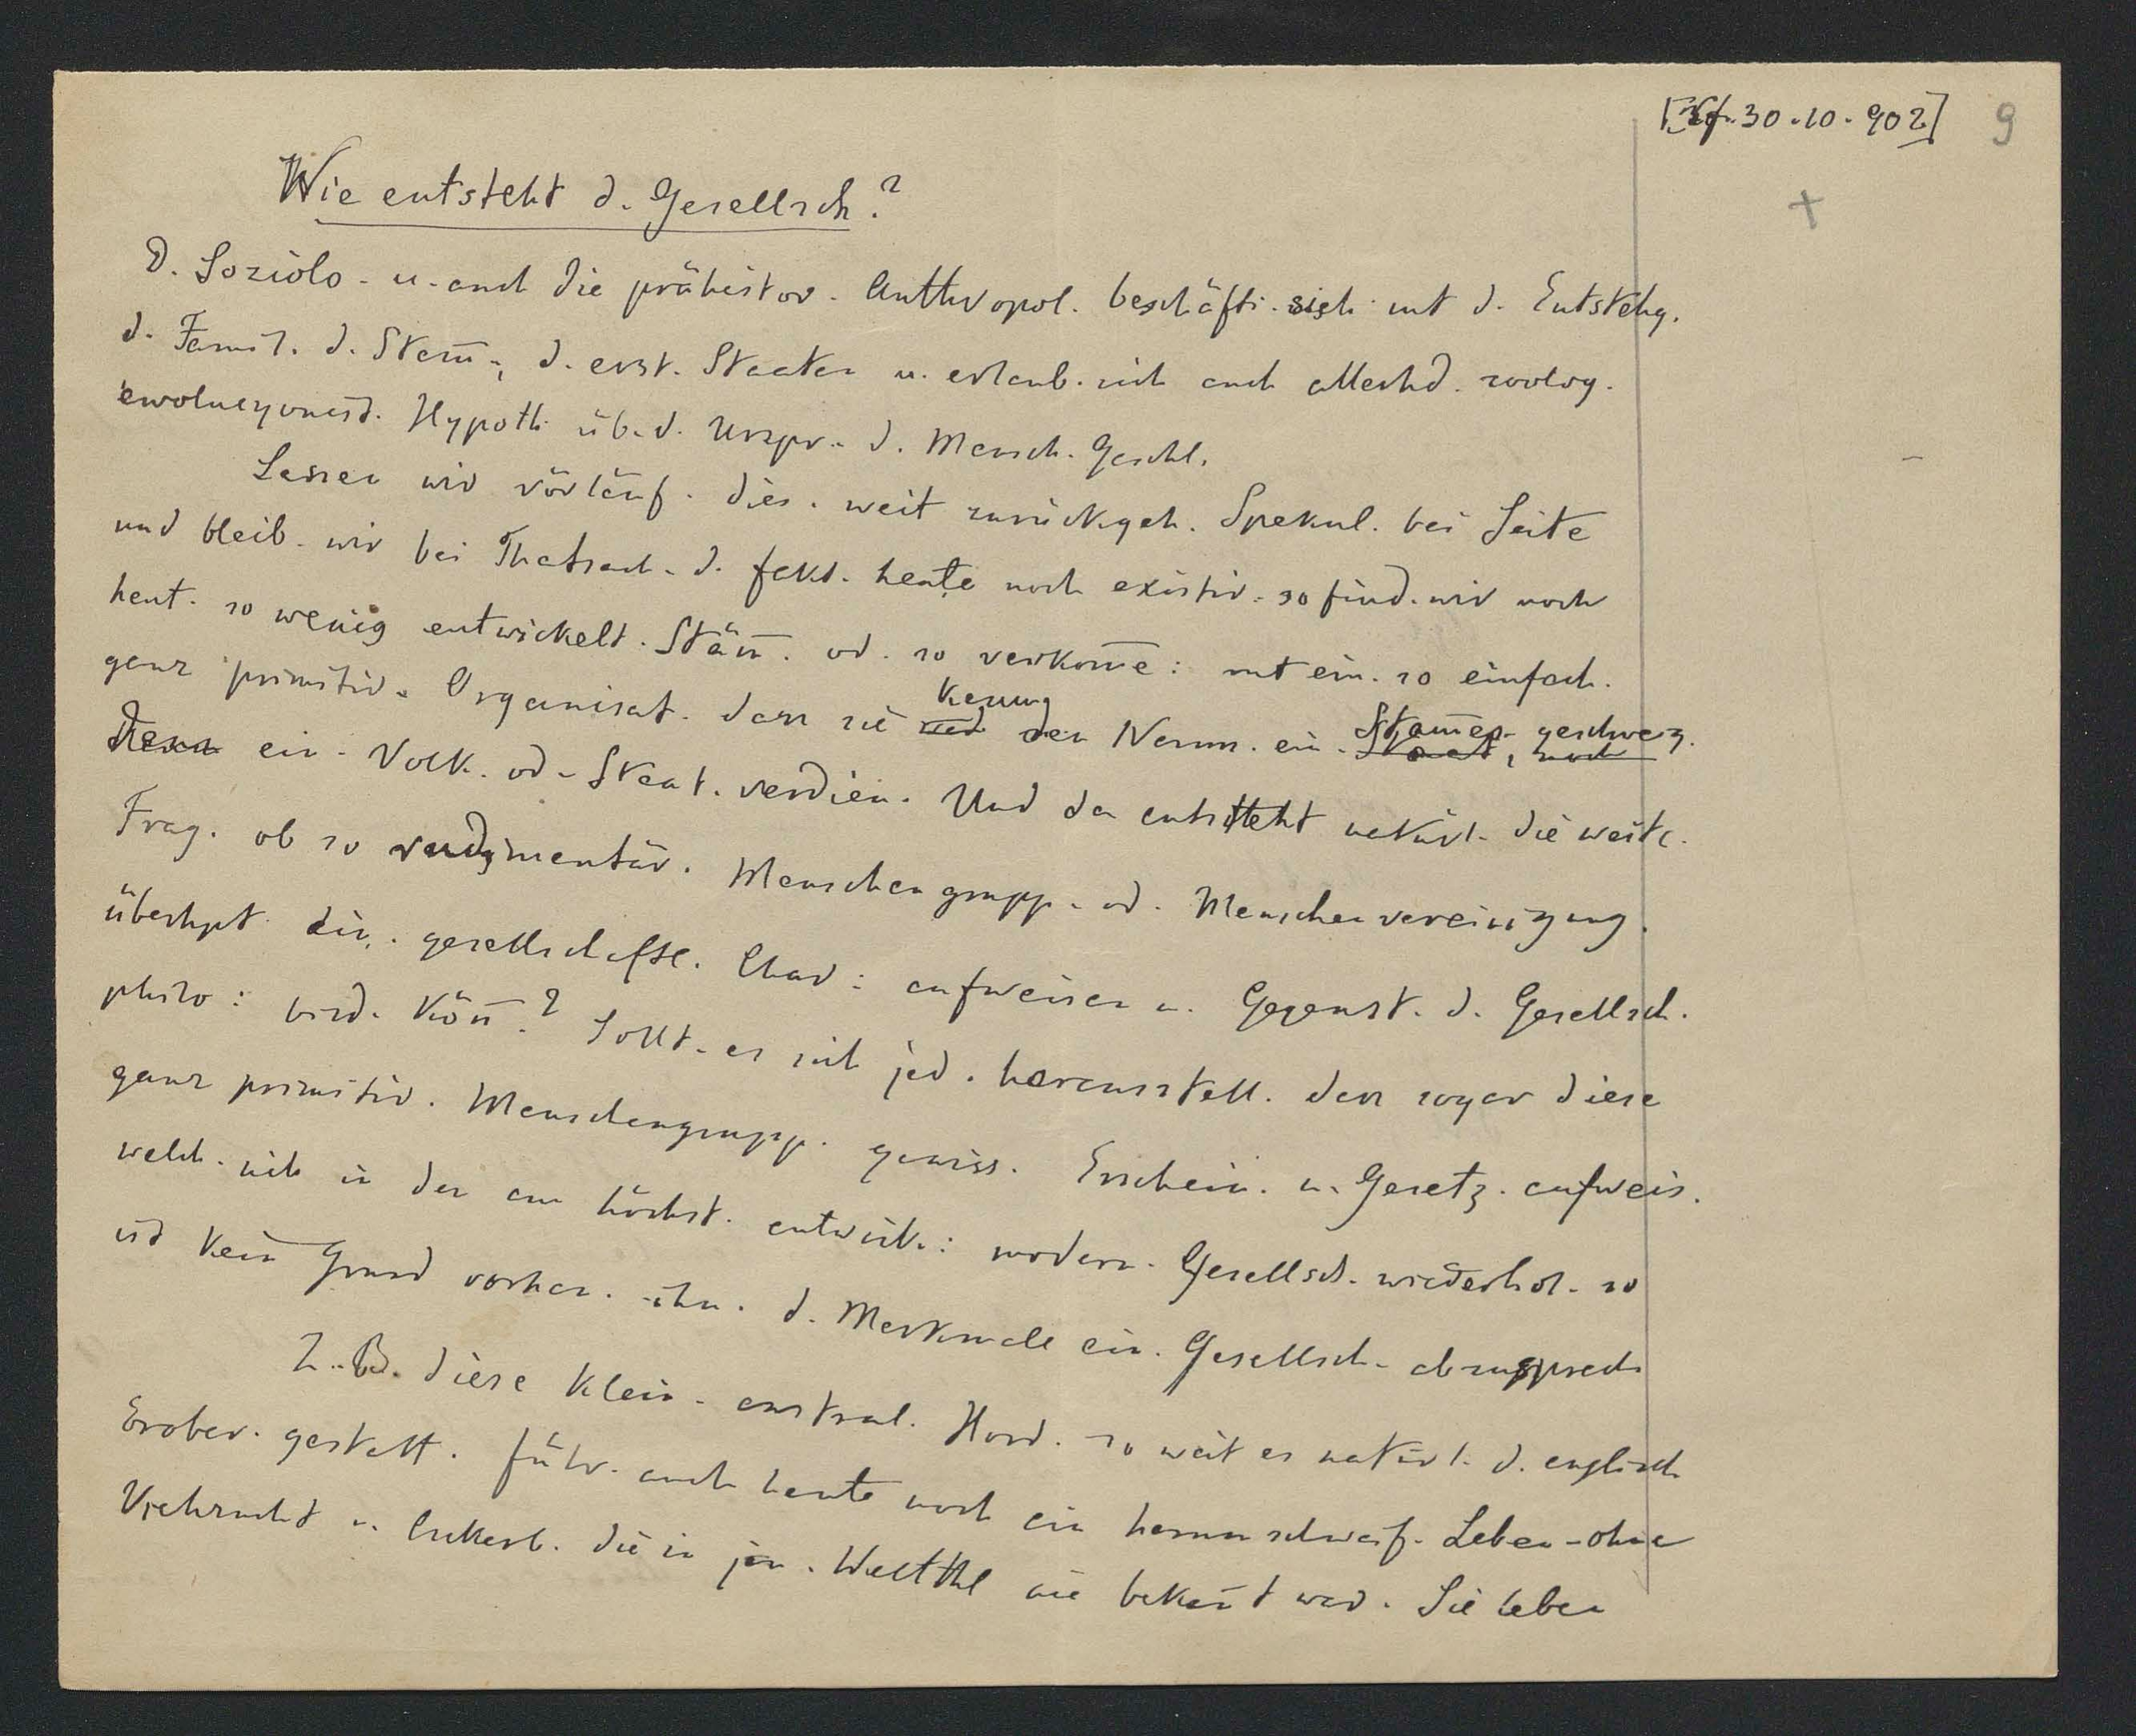 30.10.902] 9
+
Wie entsteht d. Gesellsch.?
D. Soziolo. u. auch die prähistor. Anthropol. beschäft. sich mit d. Entstehg.
d. Famil. d. Stäm̄., d. erst. Staaten u. erlaub. sich auch allerhd. zoolog.
ewolucyonist. Hypoth. üb. d. Urspr. d. Mensch. Geschl.
Lassen wir vorläuf. dies. weit zurückgeh. Spekul. bei Seite
und bleib. wir bei Thatsach. d. fakt. heute noch existir. so find. wir noch
heut. so wenig entwickelt. Stäm̄. od. so verkom̄e: mit ein. so einfach.
ganz primitiv. Organisat. dass sie kaum den Namen ein. Stam̄es geschweig.
denn ein. Volk. od. Staat. verdien. Und da entsteht natürl. die weite.
Frag. ob so rudimentär. Menschengrupp. od. Menschenvereinigung.
überhpt ein. gesellschaftl. Char: aufweisen u. Gegenst. d. Gesellsch.
philo: bild. Kön̄.? Sollt. es sich jed. herausstell. dass sogar diese
ganz primitiv. Menschengrupp. gewiss. Erschein. u. Gesetz. aufweis.
welch. sich in den am höchst. entwick.: modern. Gesellsch. wiederhol. so
ist kein Grund vorhan. ihn. d. Merkmale ein. Gesellsch. abzusprech.
Z. B. diese klein. austral. Hord. so weit es natürl. d. englisch
Erober. gestatt. führ. auch heute noch ein herumschweif. Leben - ohne
Viehzucht u. Ackerb. die in jen. Weltthl nie bekan̄t war. Sie leben